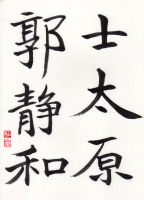 士太原
郭静和